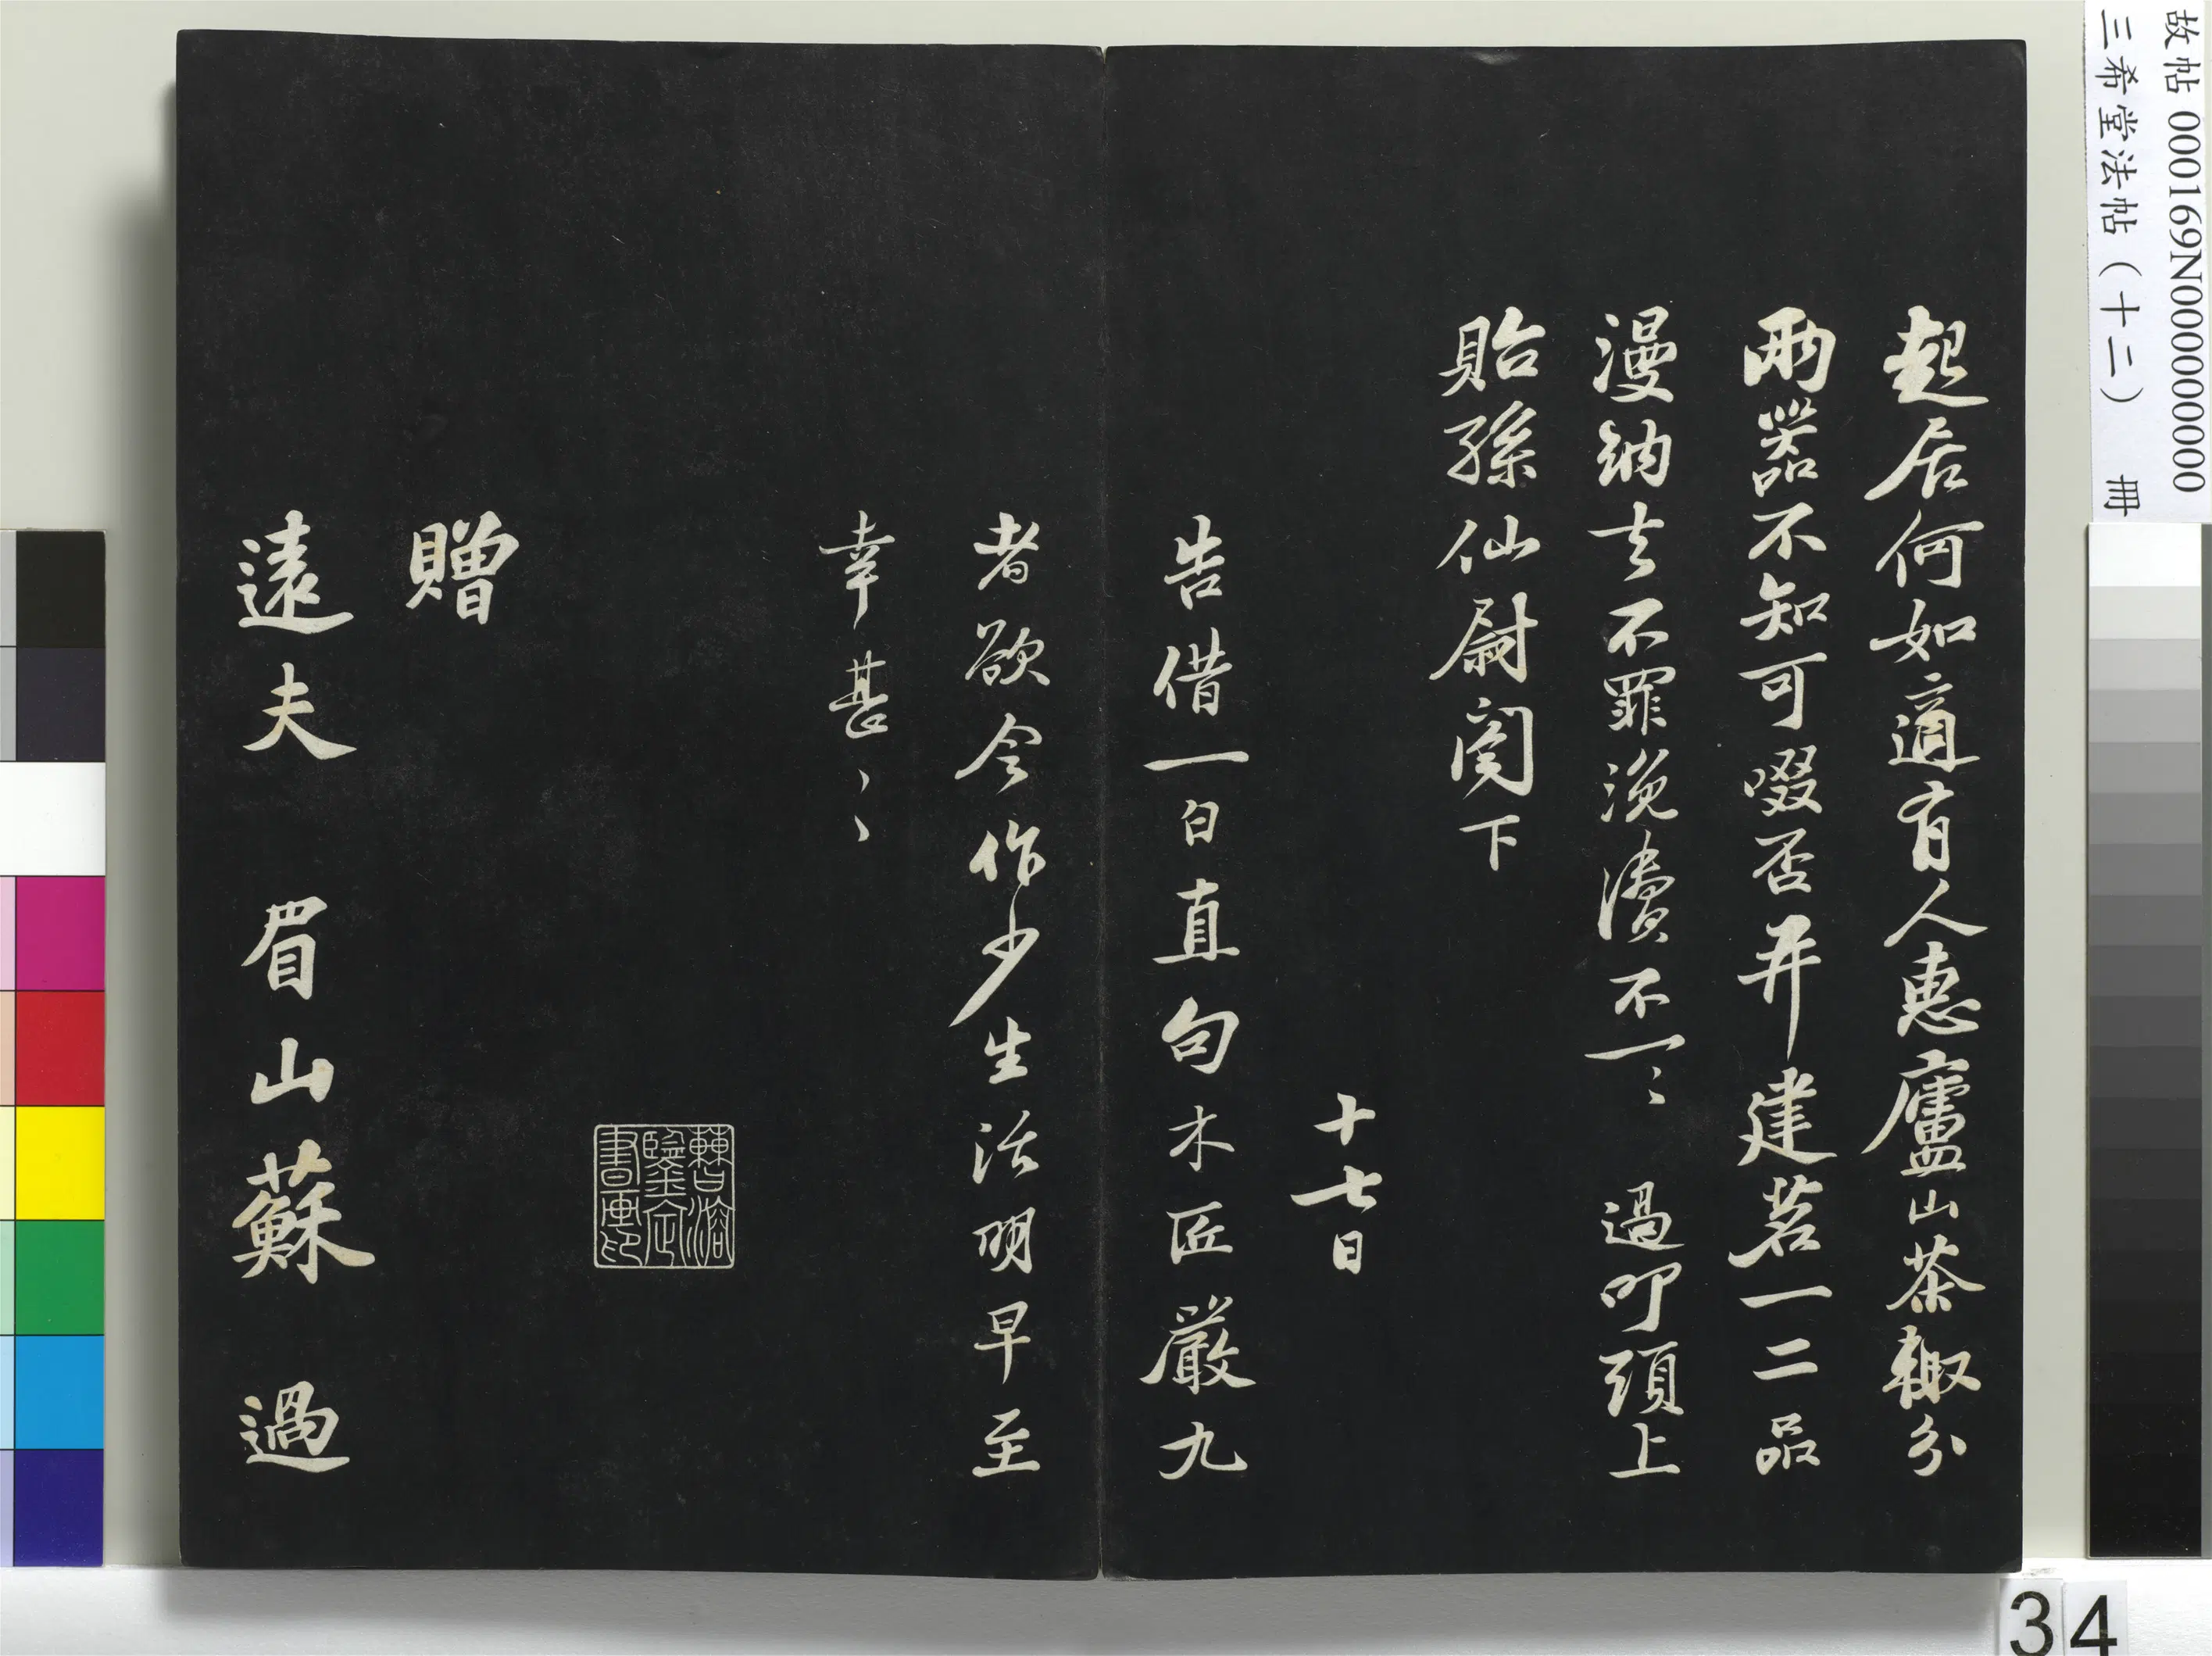 故帖 000169N000000000
三希堂法帖（十二） 冊
起居何如適有人惠廬山茶輙分
兩器不知可啜否并建茗一二品
漫納去不罪浼瀆不一〻 過叩頭上
貽孫仙尉閤下
十七日
告借一白直句木匠嚴九
者欲令作少生活明早至
幸甚〻〻
贈
遠夫 眉山蘇 過
34